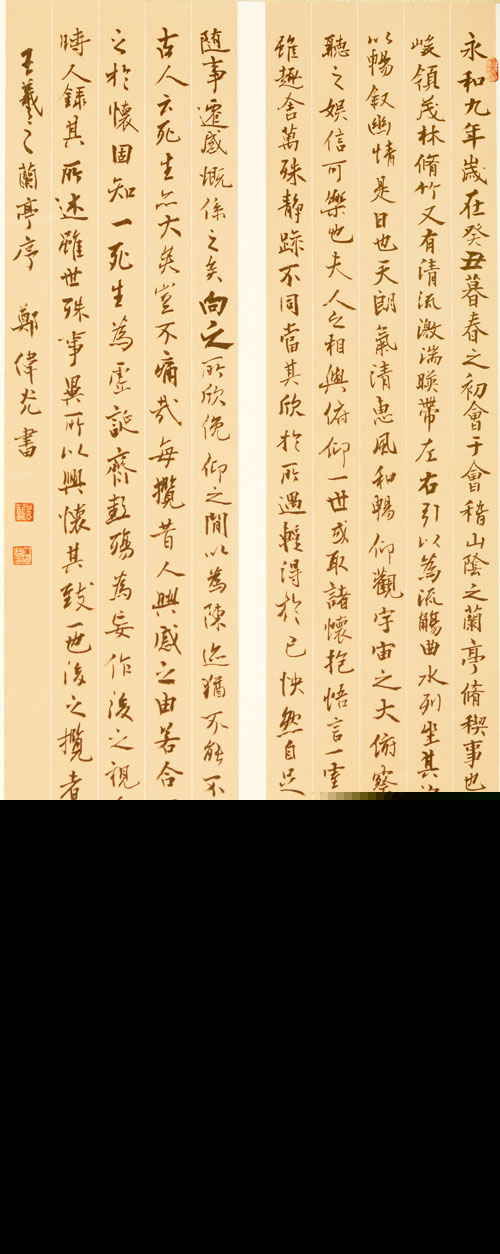 永和九年歲在癸丑暮春之初會于會稽山陰之蘭亭脩稧事也
峻領茂林脩竹又有清流激湍暎帶左右引以為流觴曲水列坐其
以暢敘幽情是日也天朗氣清惠風和暢仰觀宇宙之大俯察
聽之娛信可樂也夫人之相與俯仰一世或取諸懷抱悟言一室
雖趣舍萬殊靜躁不同當其欣於所遇輕得於己怏然自足
隨事遷感慨係之矣向之所欣俛仰之閒以為陳迹猶不能不
古人云死生亦大矣豈不痛哉每攬昔人興感之由若合
之於懷固知一死生為虛誕齊彭殤為妄作後之視
時人錄其所述雖世殊事異所以興懷其致一也後之攬者
王羲之蘭亭序 鄭偉尤書